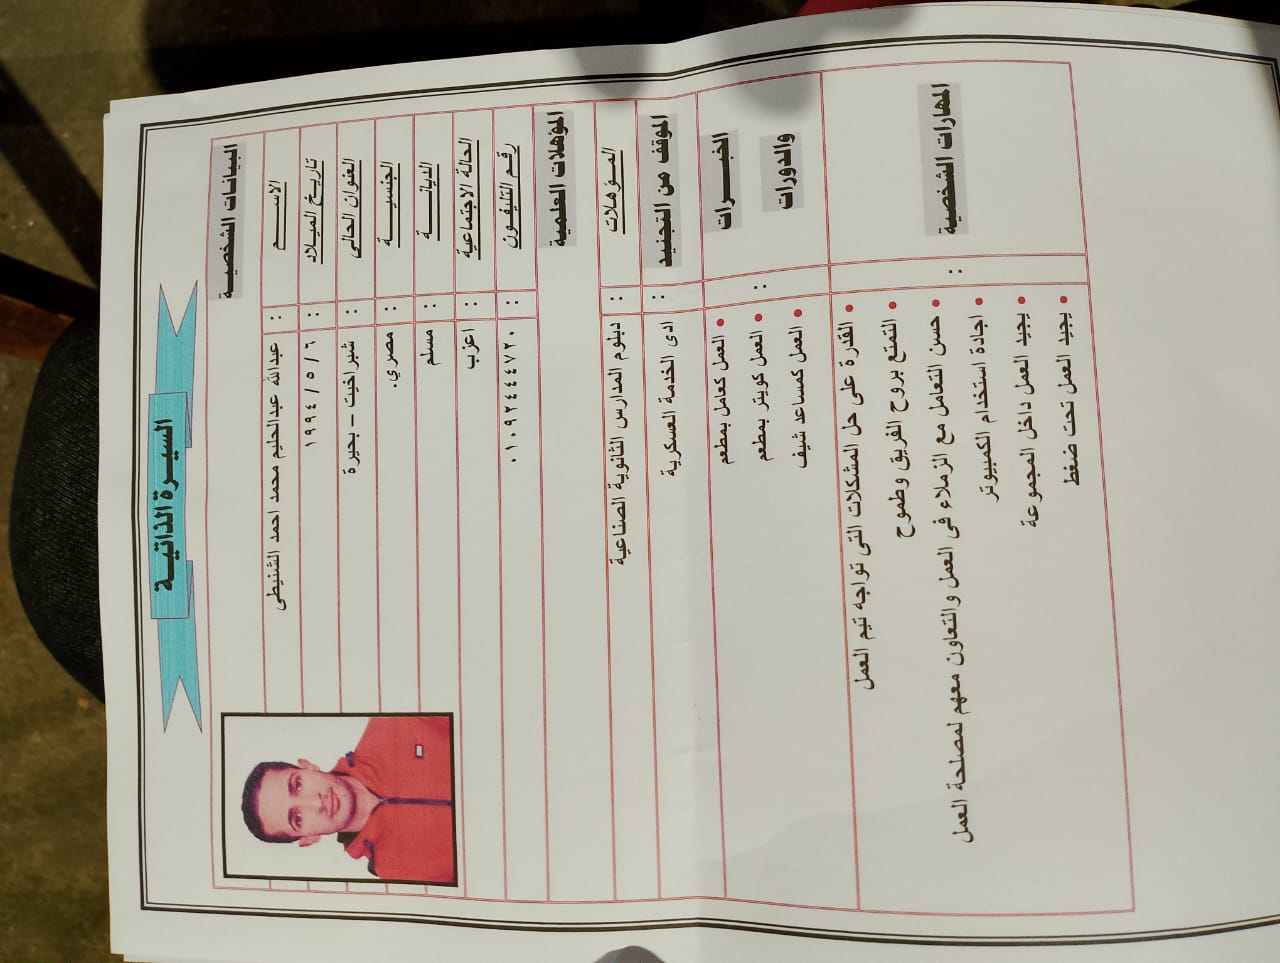 السيرة الذاتية
البيانات الشخصية
الاسم : عبدالله عبدالحليم محمد احمد الشنيطى
تاريخ الميلاد : ٦ / ٥ / ١٩٩٤
العنوان الحالى : شبراخيت – بحيرة
الجنسية : مصري.
الديانة : مسلم
الحالة الاجتماعية : اعزب
رقم التليفون : ٠١٠٩٢٤٤٤٧٢٠
المؤهلات العلمية
المؤهلات : دبلوم المدارس الثانوية الصناعية
الموقف من التجنيد : ادى الخدمة العسكرية
الخبرات
والدورات :
• العمل كعامل بمطعم
• العمل كويتر بمطعم
• العمل كمساعد شيف
المهارات الشخصية :
• القدرة على حل المشكلات التى تواجه تيم العمل
• التمتع بروح الفريق وطموح
• حسن التعامل مع الزملاء فى العمل والتعاون معهم لمصلحة العمل
• اجادة استخدام الكمبيوتر
• يجيد العمل داخل المجموعة
• يجيد العمل تحت ضغط